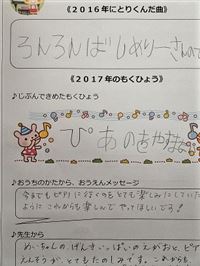 《2016年にとりくんだ曲》
ろんろんばしめりーさんの
《2017年のもくひょう》
♪じぶんできめたもくひょう
ぴあのをやる
♪おうちのかたから、おうえんメッセージ
今までもピアノに行くのをとても楽しみにしていた
ようにこれからも楽しんでやってほしいです!
♪先生から
めいちゃんのげんきいっぱいのえがおと、ピア
えんそうが、とてもたのしみです。これからも